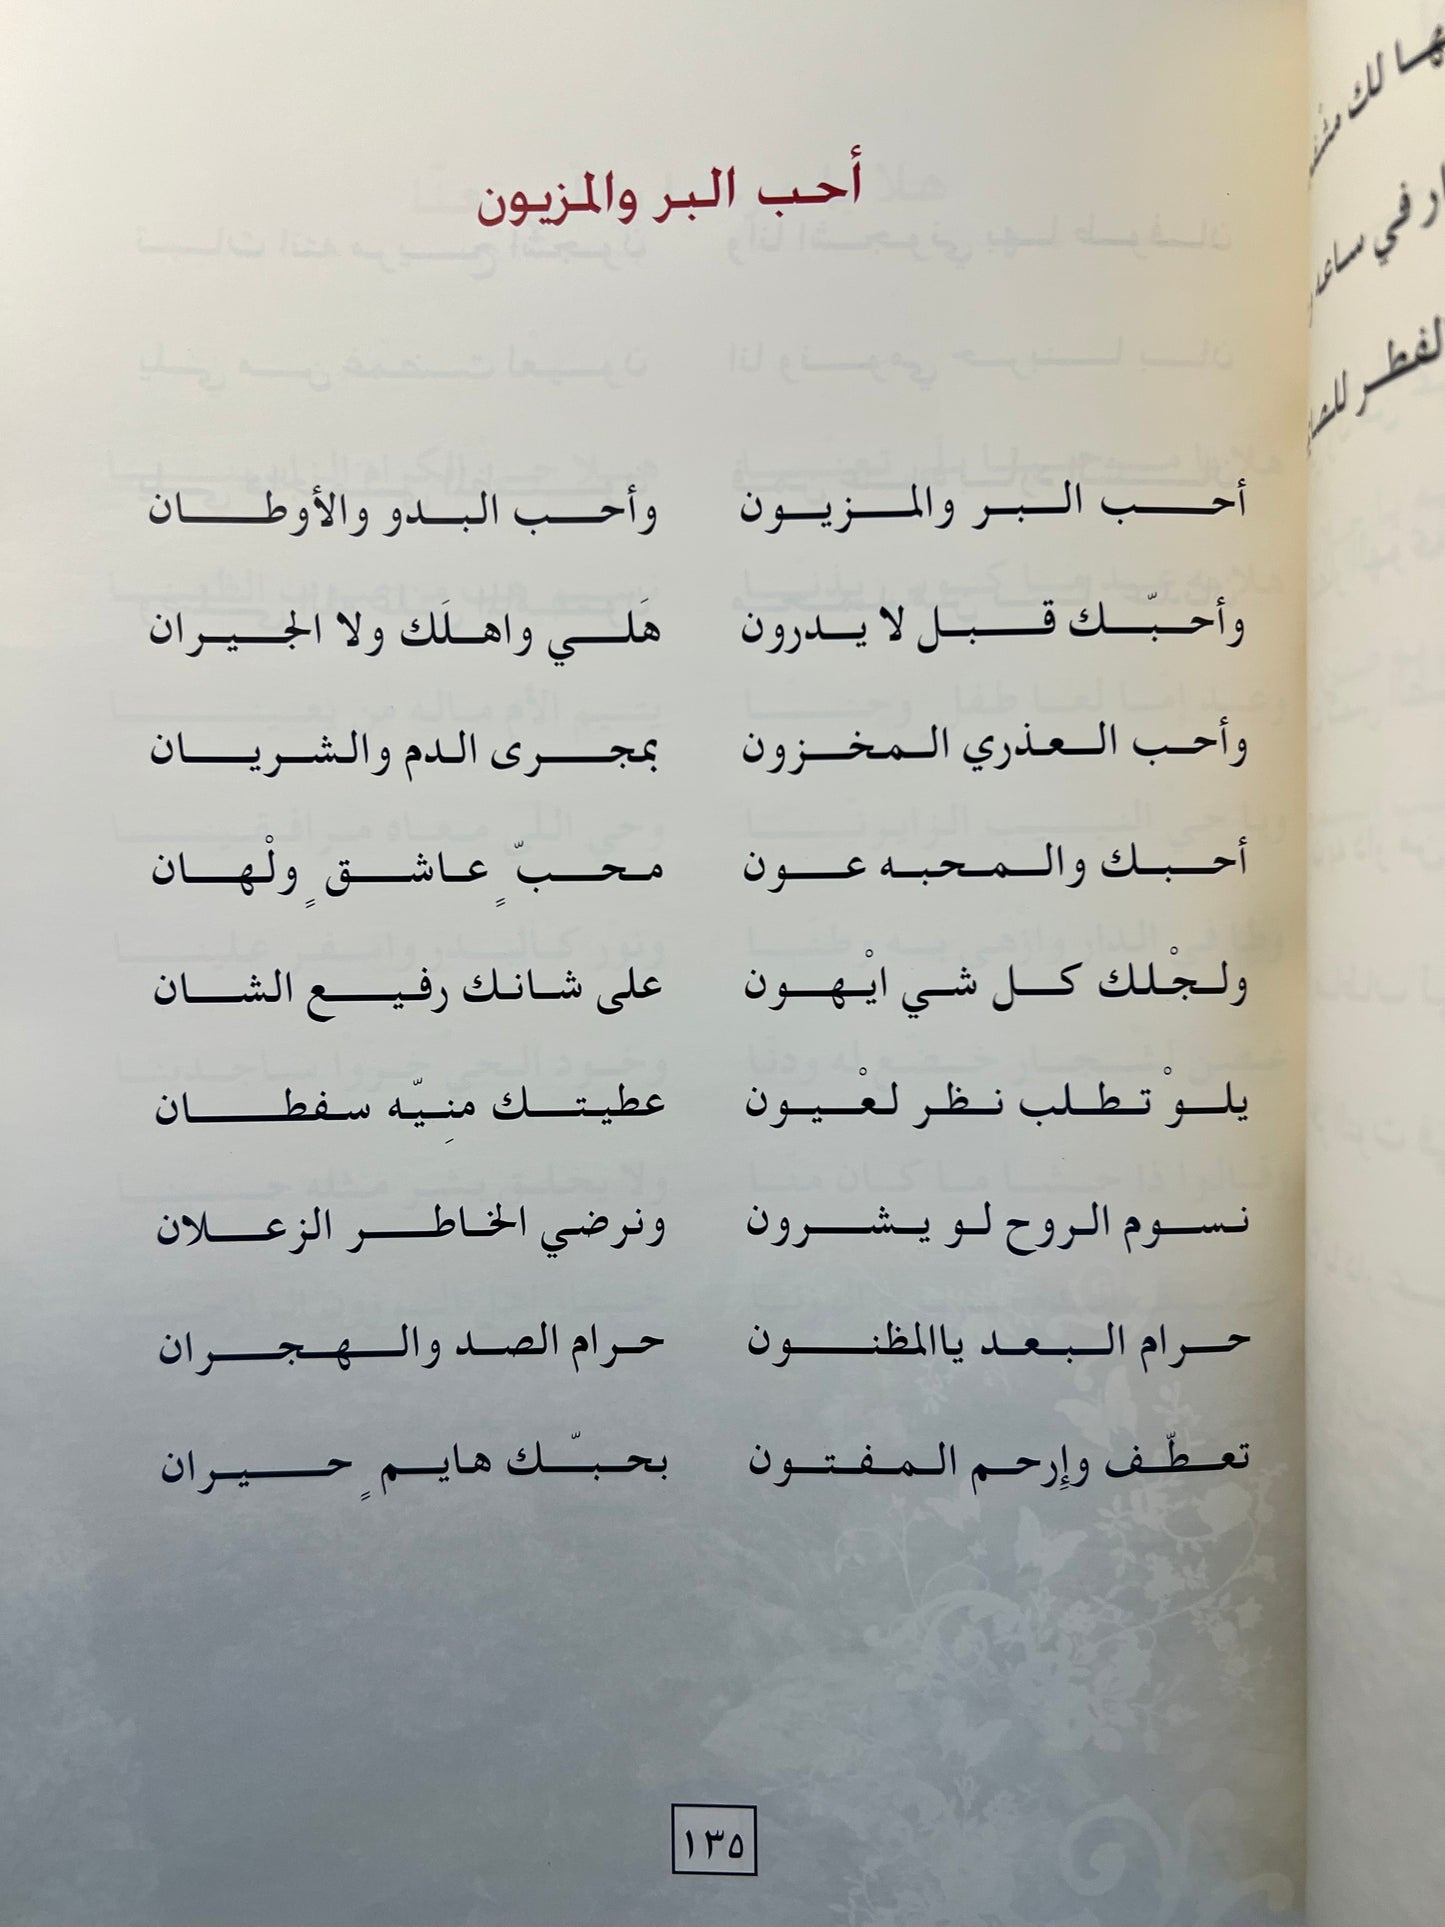 أحب البر والمزيون
أحب البر والمزيون وأحب البدو والأوطان
وأحبّك قبل لا يدرون هَلي واهلَك ولا الجيران
وأحب العذري المخزون بمجرى الدم والشريان
أحبك والمحبه عون محبّ ٍ عاشق ٍ ولْهان
ولجْلك كل شي ايْهون على شانك رفيع الشان
يلوْ تطلب نظر لعْيون عطيتك منِيّه سفطان
نسوم الروح لو يشرون ونرضي الخاطر الزعلان
حرام البعد ياالمظنون حرام الصد والهجران
تعطّف وإرحم المفتون بحبّك هايم ٍ حيران
١٣٥
لك
ار في ساعه